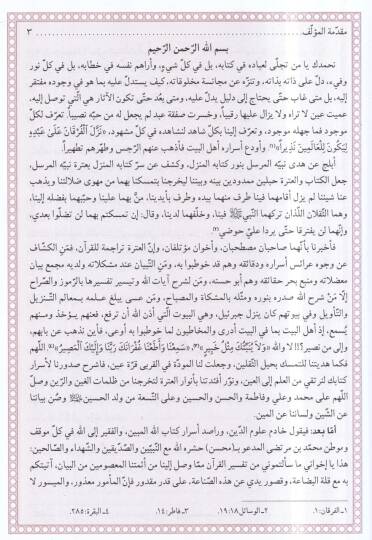 مقدّمة المؤلّف ........ ٣
بسم الله الرّحمن الرّحيم
نحمدك يا من تجلّى لعباده في كتابه، بل في كلّ شيءٍ، وأراهم نفسه في خطابه، بل في كلّ نور
وفيء، دلّ على ذاته بذاته، وتنزّه عن مجانسة مخلوقاته، كيف يستدلّ عليه بما هو في وجوده مفتقر
إليه، بل متى غاب حتّى يحتاج إلى دليل يدلّ عليه، ومتى بعُد حتّى تكون الآثار هي الّتي توصل إليه،
عميت عين لا تراه ولا يزال عليها رقيباً، وخسرت صفقة عبد لم يجعل له من حبّه نصيباً، تعرّف لكلّ
موجود فما جهله موجود، وتعرّف إلينا بكلّ شاهد لنشاهده في كلّ مشهود، «نَزَّلَ الْفُرْقَانَ عَلَىٰ عَبْدِهِ
لِيَكُونَ لِلْعَالَمِينَ نَذِيراً»(١)، وأودع أسراره أهل البيت فأذهب عنهم الرّجس وطهّرهم تطهيراً.
أبلج عن هدى نبيّه المرسل بنور كتابه المنزل، وكشف عن سرّ كتابه المنزل بعترة نبيّه المرسل،
جعل الكتاب والعترة حبلين ممدودين بينه وبيننا ليخرجنا بتمسكنا بهما من مهوى ضلالتنا ويذهب
عنا شيننا لم يزل أقامهما فينا طرف منهما بيده وطرف بأيدينا، منّ بهما علينا وحبّبهما بفضله إلينا،
وهما الثّقلان اللّذان تركهما النّبيّ ﷺ فينا، وخلّفهما لدينا، وقال: إن تمسكتم بهما لن تضلّوا بعدي،
وإنّهما لن يفترقا حتّى يردا عليّ حوضي(٢).
فأخبرنا بأنّهما صاحبان مصطحبان، وأخوان مؤتلفان، وإنّ العترة تراجمة للقرآن، فمَن الكشّاف
عن وجوه عرائس أسراره ودقائقه وهم قد خوطبوا به، ومَن التّبيان عند مشكلاته ولديه مجمع بيان
معضلاته ومنبع بحر حقائقه وهم أبو حسنه، ومَن لشرح آيات الله وتيسير تفسيرها بالرّموز والصّراح
إلّا مَنْ شرح الله صدره بنوره ومثّله بالمشكاة والمصباح، ومَن عسى يبلغ علمه بمعالم التّنزيل
والتّأويل وفي بيوتهم كان ينزل جبرئيل، وهي البيوت الّتي أذن الله أن ترفع، فعنهم يؤخذ ومنهم
يُسمع، إذ أهل البيت بما في البيت أدرى والمخاطبون لما خوطبوا به أوعى، فأين نذهب عن بابهم،
وإلى من نصير؟!! لا والله «وَلَا يُنَبِّئُكَ مِثْلُ خَبِيرٍ»(٣)، «سَمِعْنَا وَأَطَعْنَا غُفْرَانَكَ رَبَّنَا وَإِلَيْكَ الْمَصِيرُ»(٤)، اللّهم
فكما هديتنا للتمسك بحبل الثّقلين، وجعلت لنا المودّة في القربى قرّة عين، فاشرح صدورنا لأسرار
كتابك لنرتقي من العلم إلى العين، ونوّر أفئدتنا بأنوار العترة لتخرجنا من ظلمات الغين والرّين وصلّ
اللّهم على محمد وعلي وفاطمة والحسن والحسين وعلى التّسعة من ولد الحسين ﷺ وصُن بياننا
عن الشّين ولساننا عن المين.
أمّا بعد: فيقول خادم علوم الدّين، وراصد أسرار كتاب الله المبين، والفقير إلى الله في كلّ موقف
وموطن محمّد بن مرتضى المدعو بـ(محسن) حشره الله مع النّبيّين والصّدّيقين والشّهداء والصّالحين:
هذا يا إخواني ما سألتموني من تفسير القرآن ممّا وصل إلينا من أئمتنا المعصومين من البيان، آتيتكم
به مع قلّة البضاعة، وقصور يدي عن هذه الصّناعة، على قدر مقدور فإنّ المأمور معذور، والميسور لا
١ـ الفرقان: ١. ٢ـ الوسائل ١٨: ١٩. ٣ـ فاطر: ١٤. ٤ـ البقرة: ٢٨٥.